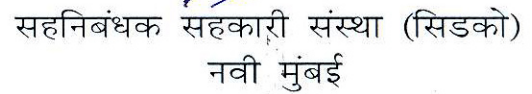 सहनिबंधक सहकारी संस्था (सिडको)
नवी मुंबई